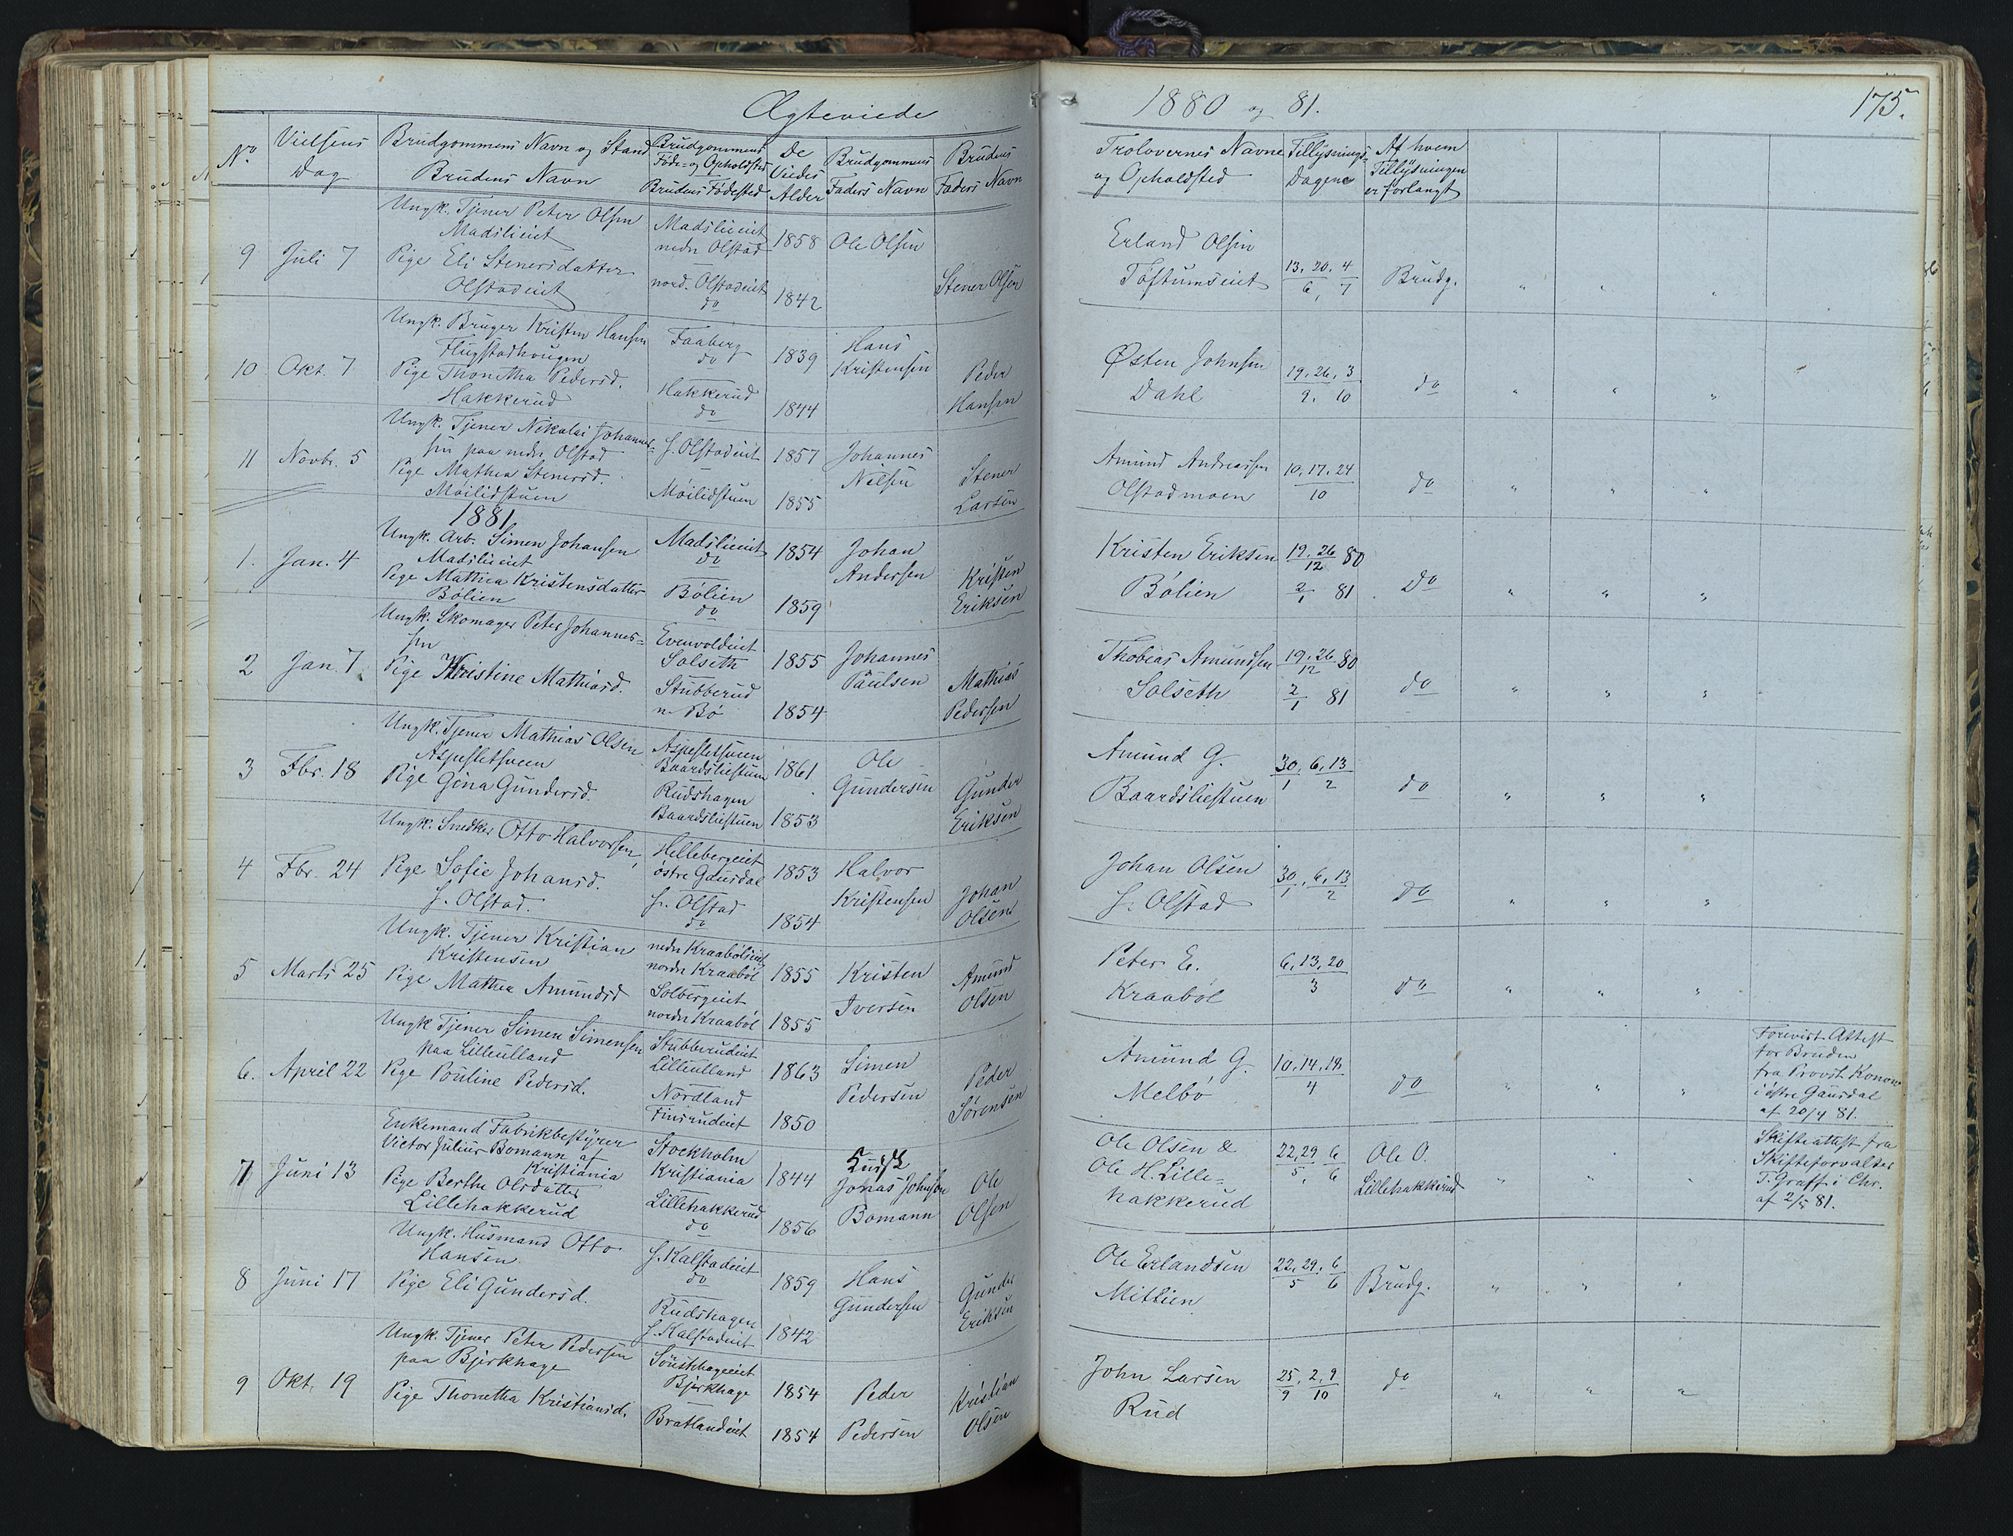 Ægteviede
1880 og 81.
175.
No
Vielsens Dag
Brudgommens Navn og Stand
Brudens Navn
Brudgommens Føde- og Opholdsted
Brudens Fødested
De Viedes Alder
Brudgommens Faders Navn
Brudens Faders Navn
Trolovernes Navne og Opholdsted
Tillysnings Dagene
Af hvem Tillysningen er forlangt
9 Juli 7
Ungk. Tjener Peter Olsen
Madslieeiet
Pige Eli Stenersdatter
Olstadeiet
Madslieeiet
nedr Olstad
nord. Olstadeiet
do
1858
1842
Ole Olsen
Stener Olsen
Erland Olsen
Toftumseiet
13, 20, 4
6, 7
Brudg.
" " "
10 Okt. 7
Ungk. Bruger Kristen Hansen
Flugstadhougen
Pige Thonetha Pedersd.
Hakkerud
Faaberg
do
Hakkerud
do
1839
1844
Hans
Kristensen
Peder
Hansen
Østen Johnsen
Dahl
19, 26, 3
9, 10
do
" " "
11 Novbr. 5
Ungk. Tjener Nikolai Johannes=
sen paa nedr. Olstad
Pige Mathea Stenersd.
Møilidstuen
S. Olstadeiet
Møilidstuen
1857
1855
Johannes
Nilsen
Stener
Larsen
Amund Andreassen
Olstadmoen
10, 17, 24
10
do
" " "
1881
1. Jan. 4
Ungk. Arb. Simen Johansen
Madslieeiet
Pige Mathea Kristensdatter
Bølien
Madslieeiet
do
Bølien
do
1854
1859
Johan
Andersen
Kristen
Eriksen
Kristen Eriksen
Bølien
19, 26 80
12
2 81
1
Do
" " "
2 Jan. 7
Ungk. Skomager Peter Johannes=
sen
Pige Kristine Mathiasd.
Evenvoldeiet
Solseth
Stubberud
n. Bø
1855
1854
Johannes
Paulsen
Mathias
Pedersen
Thobias Amundsen
Solseth
19, 26 80
12
2 81
1
do
" " "
3 Fbr. 18
Ungk. Tjener Mathias Olsen
Aspesletsveen
Pige Gina Gundersd.
Aspesletsveen
Baardsliestuen
Rudshagen
Baardsliestuen
1861
1853
Ole
Gundersen
Gunder
Eriksen
Amund G.
Baardsliestuen
30, 6, 13
1 2
do
" " "
4 Fbr. 24
Ungk. Snedker Otto Halvorsen,
Pige Sofie Johansd.
S. Olstad.
Hellebergeiet
østre Gausdal
S. Olstad
do
1853
1854
Halvor
Kristensen
Johan
Olsen
Johan Olsen
S. Olstad
30, 6, 13
1 2
do
" " "
5 Marts 25
Ungk. Tjener Kristian
Kristensen
Pige Mathea Amundsd
nedr Kraabøleiet
nordr Kraabøl
Solbergeiet
nordr Kraabøl
1855
1855
Kristen
Iversen
Amund
Olsen
Peter E.
Kraabøl
6, 13, 20
3
do
" " "
6. April 22
Ungk Tjener Simen Simensen
paa Lilleulland
Pige Pouline Pedersd.
Stubberudeiet
Lilleulland
Nordland
Finsrudeiet
1863
1850
Simen
Pedersen
Peder
Sørensen
Amund G.
Melbø
10, 14, 18
4
do
" " "
Forevist Attest
for Bruden
fra Provst Konow
i østre Gausdal
af 20/4 81.
7 Juni 13
Enkemand Fabrikbestyrer
Victor Julius Bomann af
Kristiania
Pige Berthe Olsdatter
Lillehakkerud
Stockholm
Kristiania
Lillehakkerud
do
1844
1856
Jonas Johnson
Bomann
Ole
Olsen
Ole Olsen &
Ole H. Lille=
hakkerud
22, 29 6
5, 6
Ole O.
Lillehakkerud
" " "
Skifteattest fra
Skifteforvalter
T. Graff i Chr.
af 2/5 81.
8 Juni 17
Ungk. Husmand Otto
Hansen
Pige Eli Gundersd.
S. Kalstadeiet
do
Rudshagen
S. Kalstadeiet
1859
1842
Hans
Gundersen
Gunder
Eriksen
Ole Erlandsen
Mitlien
22, 29, 6
5 6
Brudg.
" " "
9 Okt. 19
Ungk. Tjener Peter Pedersen
paa Bjerkhage
Pige Thonetha Kristiansd.
Bjerkhage
Bratlandeiet
1854
1854
Peder
Pedersen
Kristian
Olsen
John Larsen
Rud
25, 2, 9
9 10
do
" " "